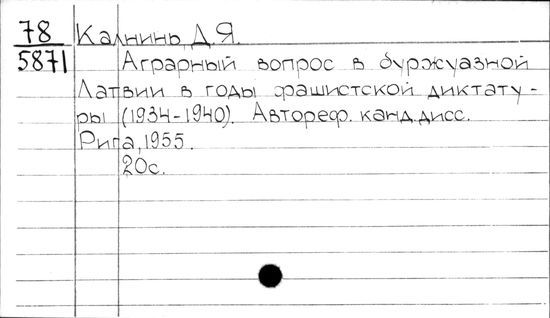 78 Калнинь, Д.Я.
5871 Аграрный вопрос в буржуазной
Латвии в годы фашистской диктату-
ры (1934-1940). Автореф. канд.дисс.
Рига, 1955.
20с.